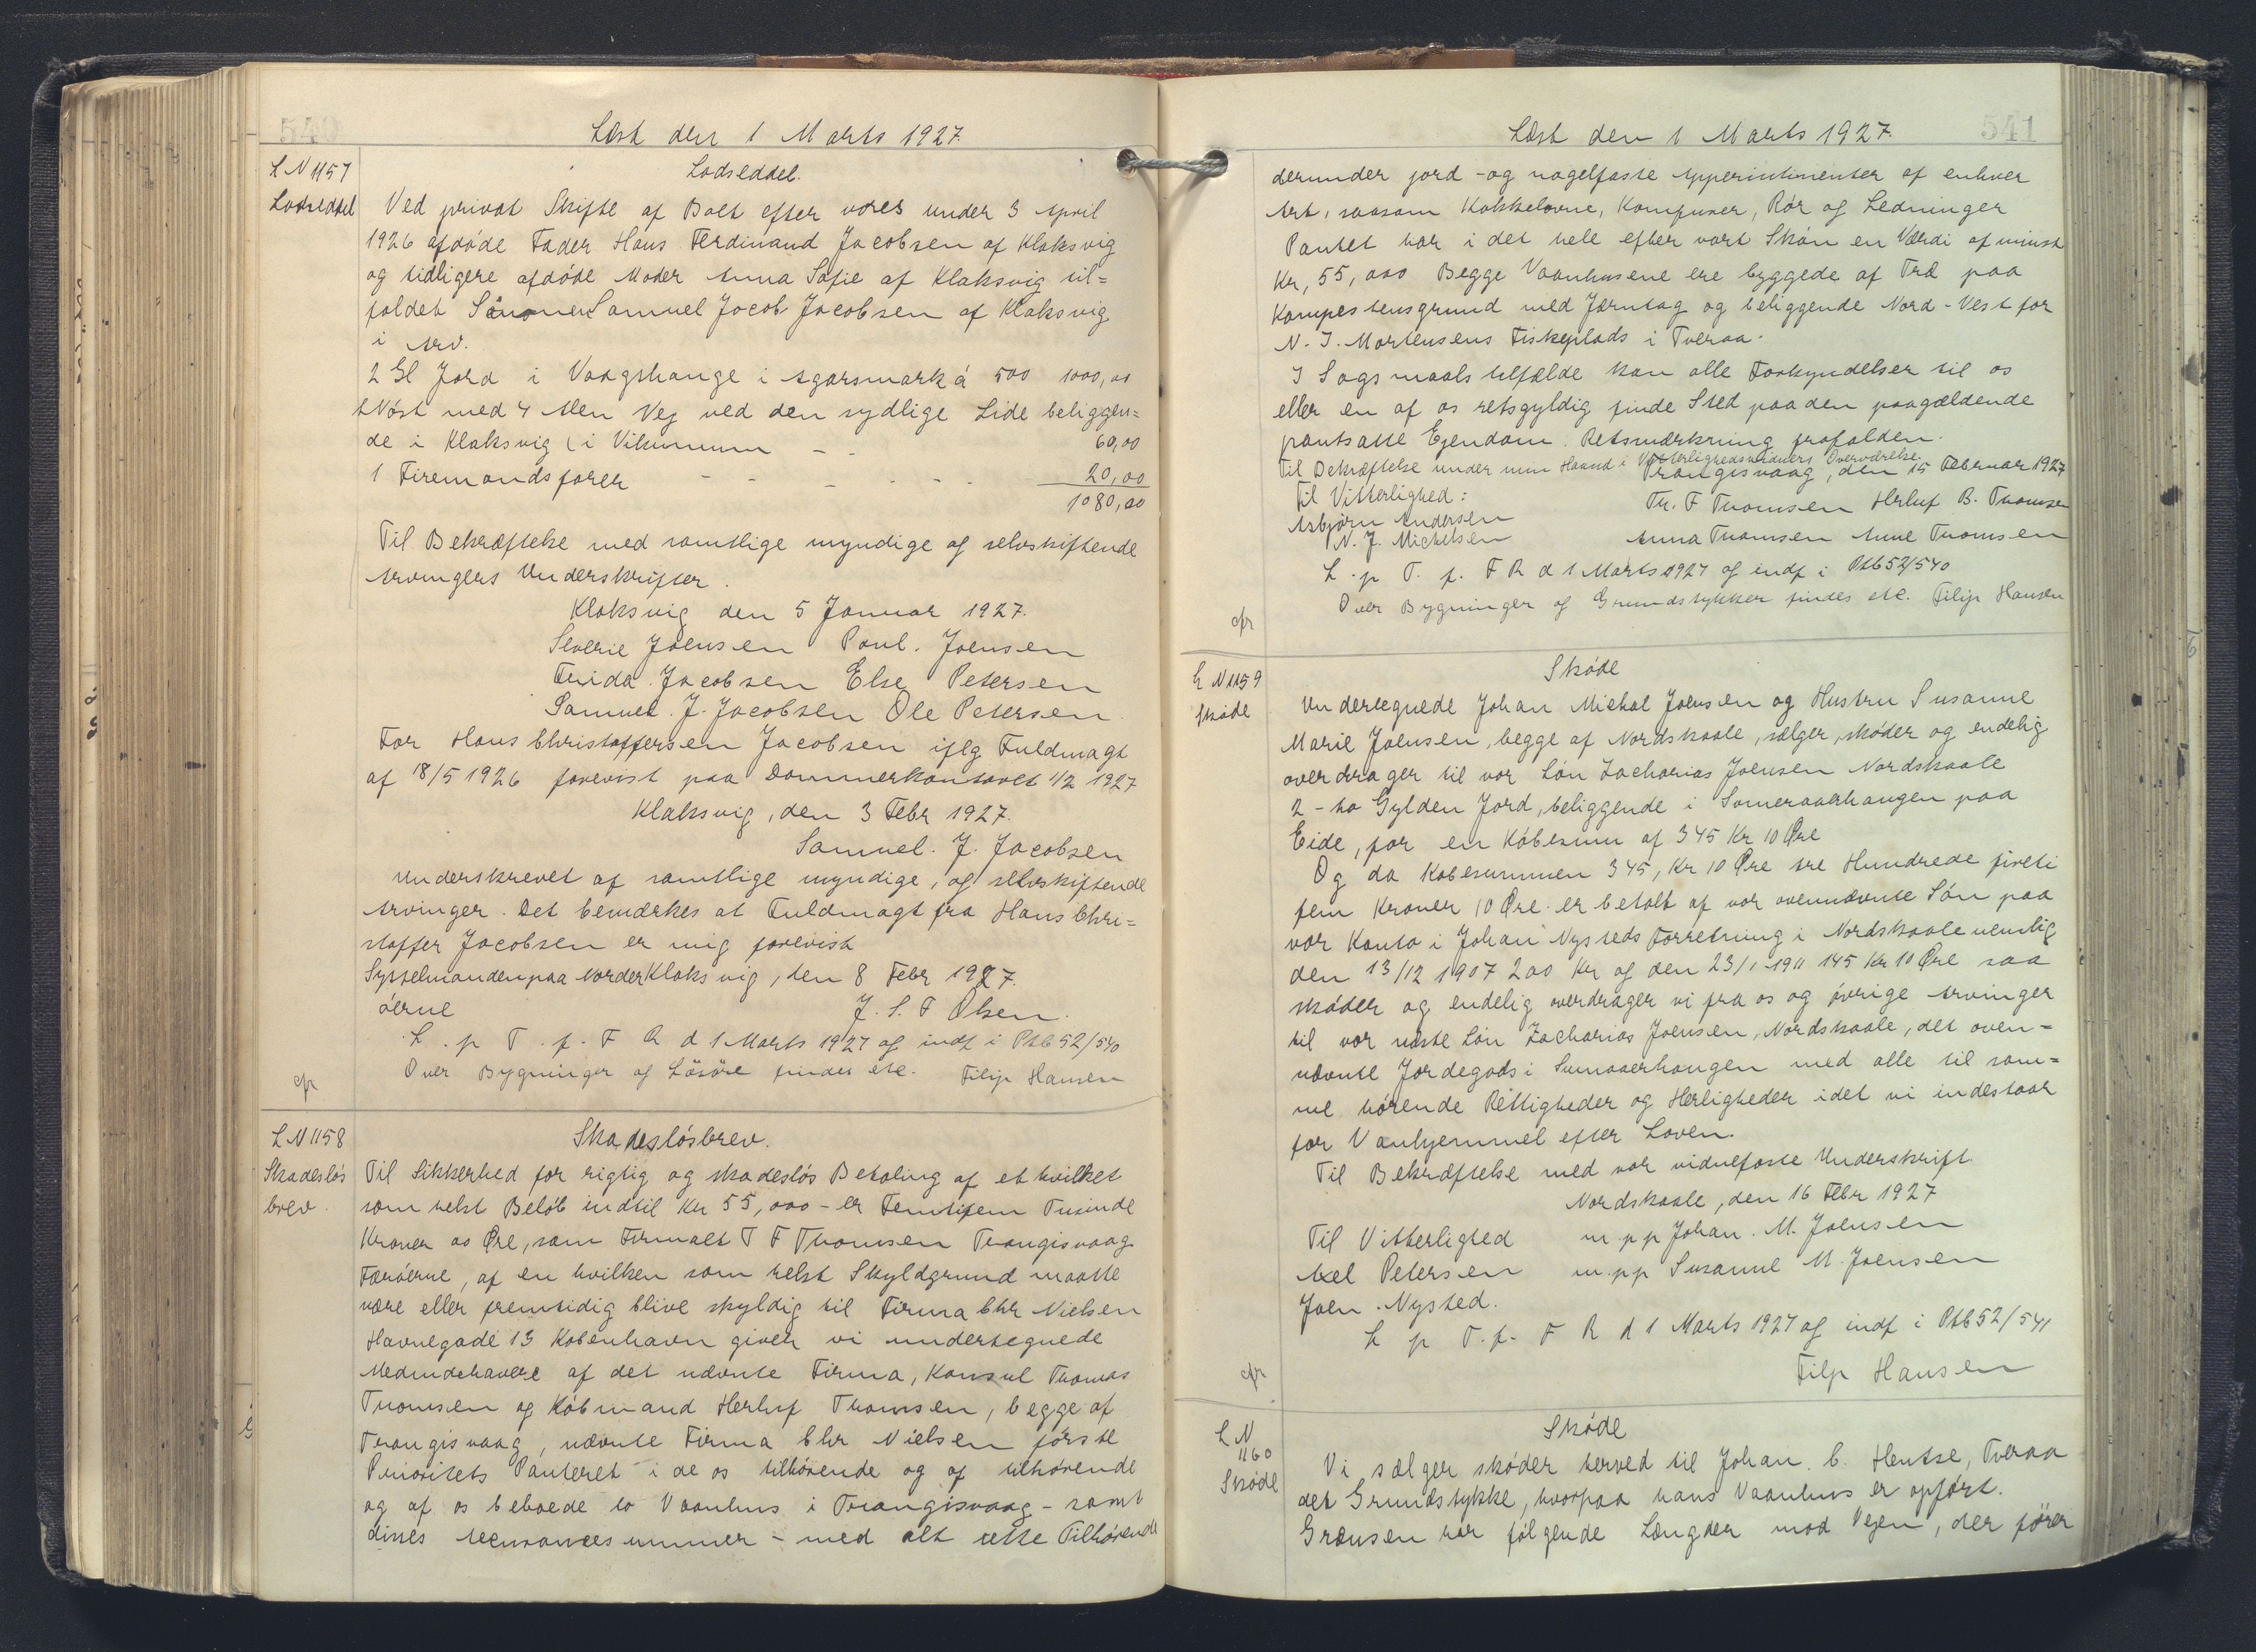 540
Læst den 1 Marts 1927.
L N 1157
Lodseddel
Lodseddel.
Ved privat Skifte af Boet efter vores under 3 April
1926 afdøde Fader Hans Ferdinand Jacobsen af Klaksvig
og tidligere afdøde Moder Anna Sofie af Klaksvig til=
faldet Sønnen Samuel Jacob Jacobsen af Klaksvig
i Arv.
2 Gl Jord i Vaagshauge i Agarsmark á 500 1000,00
1 Nøst med 4 Alen Vej ved den sydlige Side beliggen=
de i Klaksvig (i Vikunum - - 60,00
1 Firemandsfarer - - - - - - 20,00
1080,00
Til Bekræftelse med samtlige myndige og selvskiftende
Arvingers Underskrifter.
Klaksvig den 5 Januar 1927.
Severie Joensen Poul. Joensen
Frida. Jacobsen Else Petersen
Samuel. J. Jacobsen Ole Petersen.
For Hans Christoffersen Jacobsen iflg Fuldmagt
af 18/5 1926 forevist paa Dommerkontoret 1/2 1927
Klaksvig, den 3 Febr 1927.
Samuel. J. Jacobsen
Underskrevet af samtlige myndige, og selvskiftende
Arvinger. Det bemærkes at Fuldmagt fra Hans Chri=
stoffer Jacobsen er mig forevist
Sysselmanden paa Norder Klaksvig, den 8 Febr 1927.
øerne J. S. F Olsen.
L. p T. f. F R d 1 Marts 1927 og indf i Ptb 52/540
Over Bygninger og Løsöre findes etc. Filip Hansen
cfr
L N 1158
Skadesløs
brev.
Skadesløsbrev.
Til Sikkerhed for rigtig og skadesløs Betaling af et hvilket
som helst Beløb indtil Kr 55,000 - er Femtifem Tusinde
Kroner 00 Øre, som Firmaet T F Thomsen Trangisvaag
Færøerne, af en hvilken som helst Skyldgrund maatte
være eller fremtidig blive skyldig til Firma Chr Nielsen
Havnegade 13 København giver vi undertegnede
Medindehavere af det nævnte Firma, Konsul Thomas
Thomsen og Købmand Herluf Thomsen, begge af
Trangisvaag, nævnte Firma Chr Nielsen første
Prioritets Panteret i de os tilhørende og af tilhørende
og af os beboede to Vaanhus i Trangisvaag - samt
disses - med alt rette Tilhørende
541
Læst den 1 Marts 1927.
derunder jord - og nagelfaste Apperintinenter af enhver
Art, saasom Kakkelovne, Komfurer, Rör og Ledninger
Pantet har i det hele efter vort Skøn en Værdi af mindst
Kr, 55,000 Begge Vaanhusene ere byggede af Træ paa
Kampestensgrund med Jærntag og beliggende Nord-Vest for
N. J. Mortensens Fiskeplads i Tveraa.
I Sagsmaals tilfælde kan alle Forkyndelser til os
eller en af os retsgyldig finde Sted paa den paagældende
pantsatte Ejendom. Retsmærkning frafalden.
Til Bekræftelse under min Haand i Vitterlighedsvidners Overværelse.
Trangisvaag, den 15 Februar 1927
Til Vitterlighed: Th. F Thomsen Herluf B. Thomsen
Asbjørn Andersen
N. J. Michelsen Anna Thomsen Anne Thomsen
L. p T. f. F R d 1 Marts 1927 og indf i Ptb 52/540
Over Bygninger og Grundstykker findes etc. Filip Hansen
cfr
L N 1159
Skøde
Skøde
Undertegnede Johan Michal Joensen og Hustru Susanne
Marie Joensen, begge af Nordskaale, sælger, skøder og endelig
overdrager til vor Søn Zacharias Joensen Nordskaale
2 - to Gylden Jord, beliggende i Someraaerhaugen paa
Eide, for en Købesum af 345 Kr 10 Øre
Og da Købesummen 345, Kr 10 Øre tre Hundrede fireti
fem Kroner 10 Øre. er betalt af vor ovennævnte Søn paa
vor Konto i Johan Nysteds Forretning i Nordskaale nemlig
den 13/12 1907 200 Kr og den 23/1-1911 145 Kr 10 Øre saa
skøder og endelig overdrager vi fra os og øvrige Arvinger
til vor næste Søn Zacharias Joensen, Nordskaale, det oven=
nævnte Jordegods i Sumaaerhaugen med alle til sam=
me hørende Rettigheder og Herligheder idet vi indestaar
for Vanhjemmel efter Loven.
Til Bekræftelse med vor vidnefaste Underskrift.
Nordskaale, den 16 Febr 1927
Til Vitterlighed m.p.p Johan. M. Joensen
Axel Petersen m.pp Susanne M. Joensen
Joen. Nysted.
L p T. f. F R d 1 Marts 1927 og indf i Ptb 52/541
Filip Hansen
cfr
L N
1160
Skøde
Skøde
Vi sælger skøder herved til Johan. C. Hentze, Tveraa
det Grundstykke, hvorpaa hans Vaanhus er opført.
Grænsen har følgende Længder mod Vejen, der fører